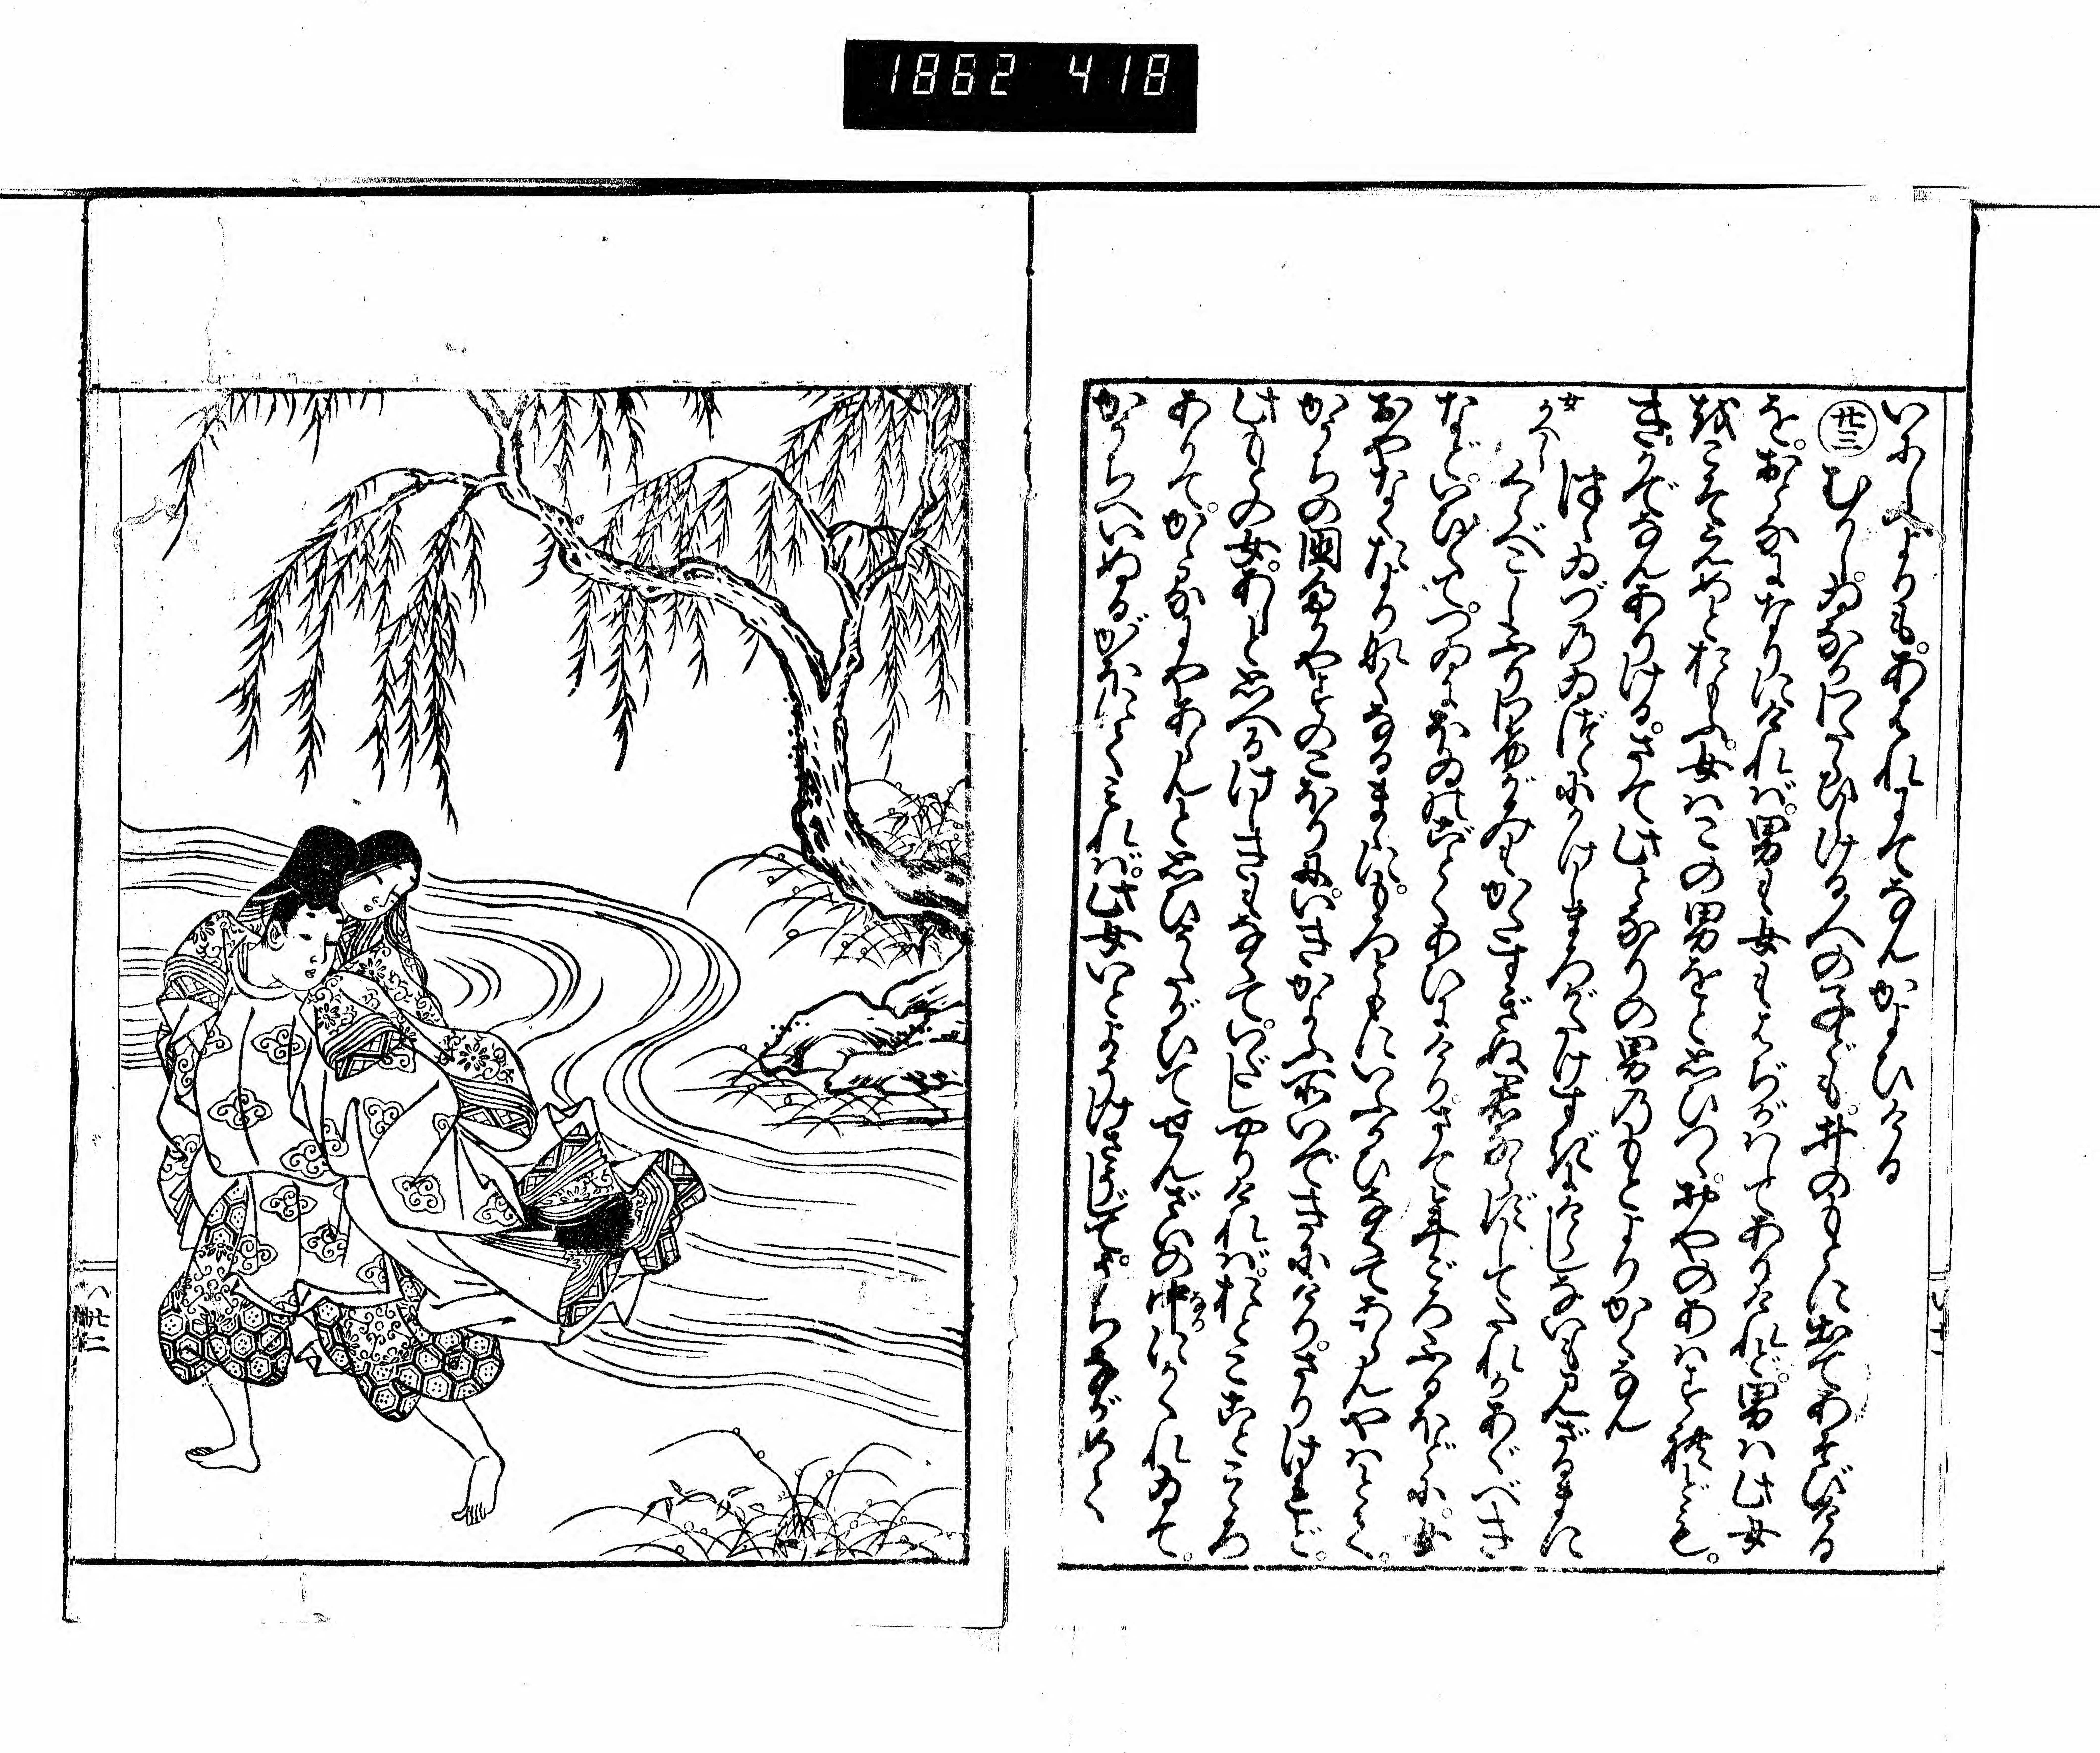 1862 418
いにしへよりも。あはれにてなんかよひける
廿三 むかしゐなかわたらひしける人の子ども。井のもとに出てあそびける
を。おとなになりにければ。男も女もはぢかはしてありけれど。男は此女
をこそえめとおもふ。女はこの男をと思ひつゝ。おやのあはすれども。
きかでなんありける。さて此となりの男のもとよりかくなん
つゝゐづのゐづゝにかけしまろがたけすぎにけらしないも見ざるまに
女かへし
くらべこしふりわけ髪もかたすぎぬ君ならずしてたれかあぐべき
などいひ〳〵て。つゐにほゐのごとくあひにけり。さて年ごろふるほどに。女
おやなくたよりなくなるまゝに。もろともにいふかひなくてあらんやはとて。
かうちの国高やすのこほりに。いきかよふ所いできにけり。さりけれど。
此もとの女。あしと思へるけしきもなくて。いだしやりければ。おとここと心
ありて。かゝるにやあらんと思ひうたがひて。せんざいの中にかくれゐて。
かうちへいぬるがほにてみれば。此女いとようけさうじて。うちながめて
廿二